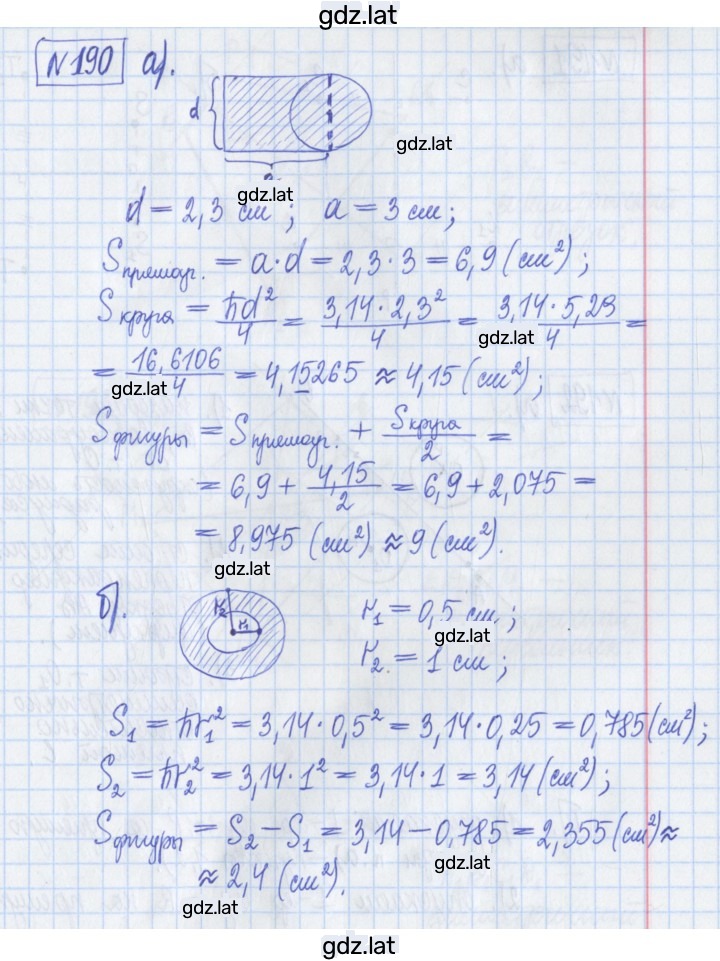 gdz.lat
N190 а).
d
gdz.lat
gdz.lat
d = 2,3 см ; a = 3 см ;
Sпрямоуг. = a · d = 2,3 · 3 = 6,9 (см²) ;
Sкруга = πd²/4 = 3,14 · 2,3²/4 = 3,14 · 5,29/4 =
gdz.lat
= 16,6106/4 = 4,15265 ≈ 4,15 (см²) ;
gdz.lat
Sфигуры = Sпрямоуг. + Sкруга/2 =
= 6,9 + 4,15/2 = 6,9 + 2,075 =
= 8,975 (см²) ≈ 9 (см²).
gdz.lat
б). r₂ r₁ r₁ = 0,5 см ;
gdz.lat
r₂ = 1 см ;
S₁ = πr₁² = 3,14 · 0,5² = 3,14 · 0,25 = 0,785 (см²) ;
S₂ = πr₂² = 3,14 · 1² = 3,14 · 1 = 3,14 (см²) ;
Sфигуры = S₂ − S₁ = 3,14 − 0,785 = 2,355 (см²) ≈
gdz.lat
≈ 2,4 (см²).
gdz.lat
gdz.lat